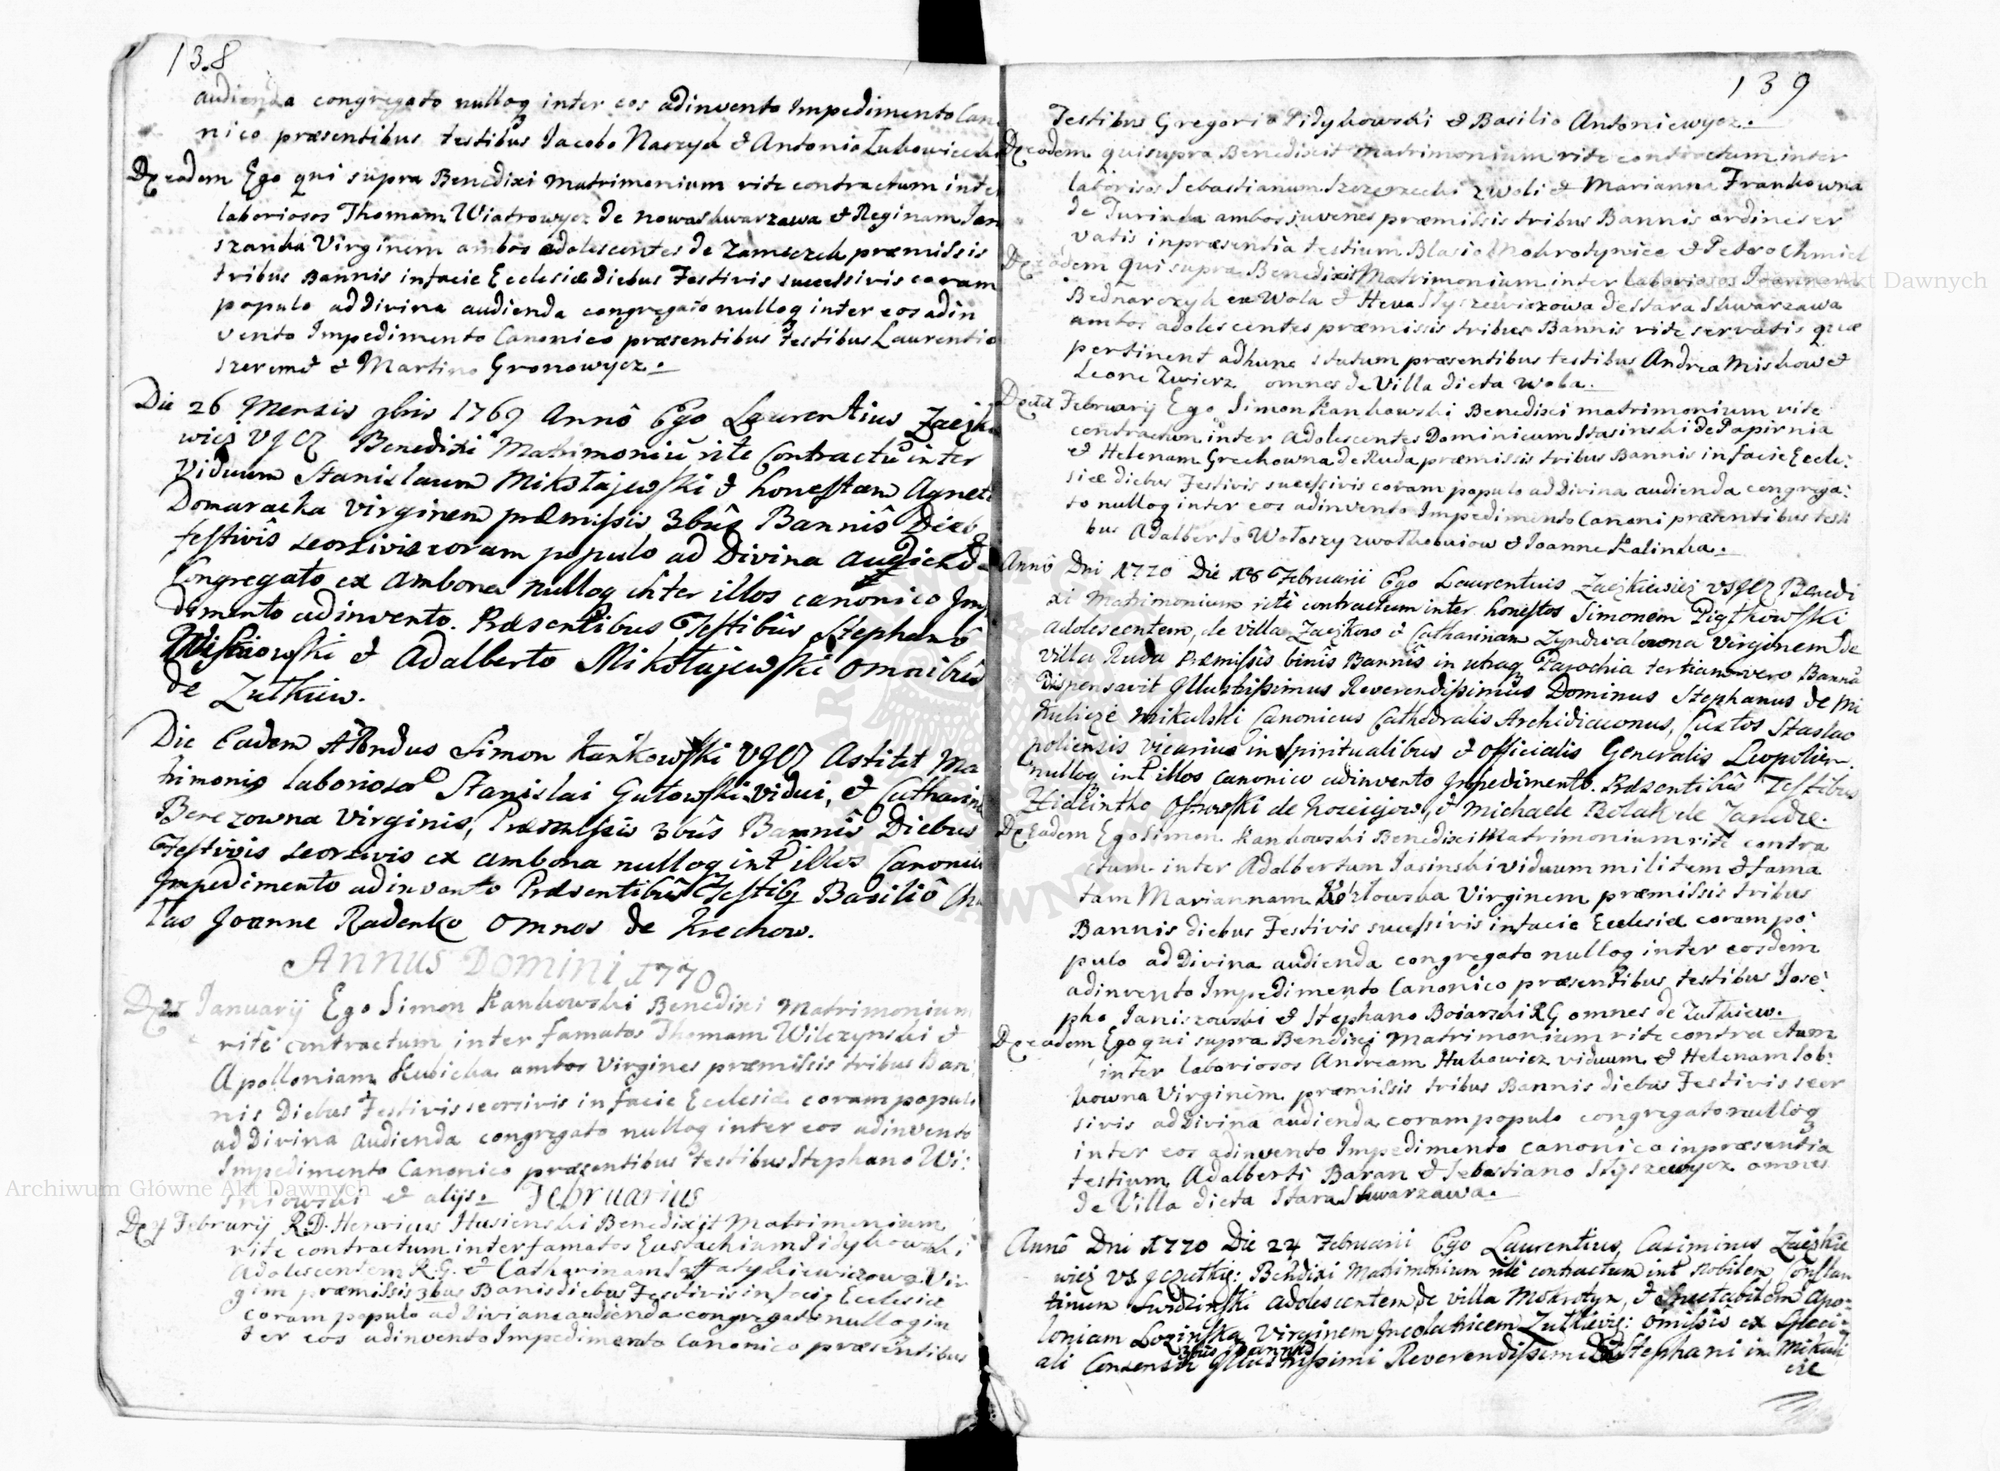 138
audienda congregato nulloq inter eos adinvento Impedimento Cano
nico præsentibus testibus Iacobo Naszyk & Antonio
Die eadem Ego qui supra Benedixi matrimonium rite contractum inter
laboriosos Thomam Wiatrowycz de nowaskwarzawa & Reginam
szanka Virginem ambos adolescentes de Zameczek præmissis
tribus Bannis infacie Ecclesiæ diebus Festivis successivis coram
populo ad divina audienda congregato nulloq inter eos adin
vento Impedimento Canonico præsentibus Testibus Laurentio
szeremet & Martino Gronowycz.
Die 26 Mensis 9bris 1769 Annô Ego Laurentius Zaczke
wicz VGCZ Benedixi Matrimoniũ rite Contractũ inter
Viduum Stanislaum Mikołajewski & honestam Agnet
Domaracka virginem præmissis 3bûs Bannis Dieb
festivis seorsivis coram populo ad Divina audienda
Congregato ex ambona nulloq inter illos canonico Im
dimento adinvento. Præsentibus Testibûs Stephanô
Misniowski & Adalberto Mikołajewski omnibûs
de Zulkiew.
Die Eadem Simon Kankowski VGCZ Astitit Ma
trimonio Stanislai Gutowski vidui, & Catharinæ
Berezowna Virginis, Præmissis 3bûs Bannis Diebus
Festivis seorsivis ex ambona nulloq int illos Canonico
Impedimento adinvento Præsentibus Testibq Basiliô
Joanne Radenko omnes de Krechow.
Annus Domini, 1770
Ianuarij Ego Simon Kankowski Benedixi Matrimonium
ritè contractum inter famatos Thomam Wilczynski &
Apolloniam Kubicka ambos Virgines præmissis tribus Ban
nis Diebus Festivis seorsivis infacie Ecclesiæ coram populo
ad Divina audienda congregato nulloq inter eos adinvento
Impedimento Canonico præsentibus testibus Stephano Wi:
sniowski & alijs. Februarius
Februarij R.D. Henricus Husienski Benedixit Matrimonium
rite contractum inter famatos Eustachium Pidykowski
Adolescentem R.G. & Catharinam Vir
gin præmissis 3bus Banis diebus Festivis infacie Ecclesiæ
coram populo ad Diviana audienda congregato nulloq in
ter eos adinvento Impedimento Canonico præsentibus
139
Testibus Gregorio Pidykowski & Basilio Antoniewycz.
Die eadem qui supra Benedixit matrimonium rite contractum inter
laboriosos Sebastianum Szczerzecki zwoli & Marianna Frankowna
de Turinka ambos juvenes præmissis tribus Bannis ordine ser
vatis inpræsentia testium Blasio Mokrotynice & Petro Chmiel
Die eadem Qui supra Benedixit Matrimonium inter laboriosos Ioannem
Bednarczyk ex Wola & Heva de Stara Skwarzawa
ambos adolescentes præmissis tribus Bannis rite servatis quæ
pertinent adhunc statum præsentibus testibus Andrea Miskow &
Leone Zwierz omnes de Villa dicta Wola.
Februarij Ego Simon Kankowski Benedixi matrimonium rite
contractum inter Adolescentes Dominicum Stasinski de Papirnia
& Helenam Grechowna de Ruda præmissis tribus Bannis infacie Eccle:
siæ diebus Festivis sucessivis coram populo ad Divina audienda congrega:
to nulloq inter eos adinvento Impedimento Canoni præsentibus testi
bus Adalberto & Ioanne Kalinka.
Annô Dni 1770 Die 18 Februarii Ego Laurentius Zaczkiewicz VSGCZ Benedi
xi Matrimonium ritè contractum inter honestos Simonem Piątkowski
Adolescentem, de villa Zaczkow & Catharinam virginem de
villa Ruda Præmissis binis Bannis in utraq Parochia tertiam vero Bannã
Dispensavit Illustrissimus Reverendissimus Dominus Stephanus de Mi
kulicze Mikulski Canonicus Cathedralis Archidiaconus, Custos Staslao
poliensis vicarius in Spiritualibus & Officialis Generalis Leopolien.
nulloq int illos canonico adinvento Impedimento. Præsentibûs Testibus
Hiacintho & Michaele Bolak de Zameczc.
Die Eadem Ego Simon Kankowski Benedixi Matrimonium rite contra
ctum inter Adalbertum Iasinski viduum militem & fama
tam Mariannam Kozłowska Virginem præmissis tribus
Bannis diebus Festivis sucessivis infacie Ecclesiæ coram po
pulo ad Divina audienda congregato nulloq inter eosdem
adinvento Impedimento Canonico præsentibus testibus Iose:
pho Ianiszowski & Stephano Boiarski RG omnes de Zulkiew.
Die eadem Ego qui supra Benedixi Matrimonium rite contractum
inter laboriosos Andream Hukowicz viduum & Helenam Sob:
kowna Virginem præmissis tribus Bannis diebus Festivis seor
sivis ad Divina audienda coram populo congregato nulloq
inter eos adinvento Impedimento canonico inpræsentia
testium Adalberti Baran & Sebastiano omnes
de Villa dicta Stara Skwarzawa.
Annô Dni 1770 Die 24 Februarii Ego Laurentius Casimirus Zaczkie
wicz Benedixi Matrimonium ritè contractum int Nobilem Constan
tinum Swidzinski Adolescentem de villa Mokrotyn, & Spectabilem Apo:
loniam Lozinska Virginem Incolatricem Zulkievie: omissis ex Speci:
3bus Bannis
ali Consensu Illustrissimi Reverendissimi Stephani in Mikuli
cze
Archiwum Główne Akt Dawnych
Archiwum Główne Akt Dawnych